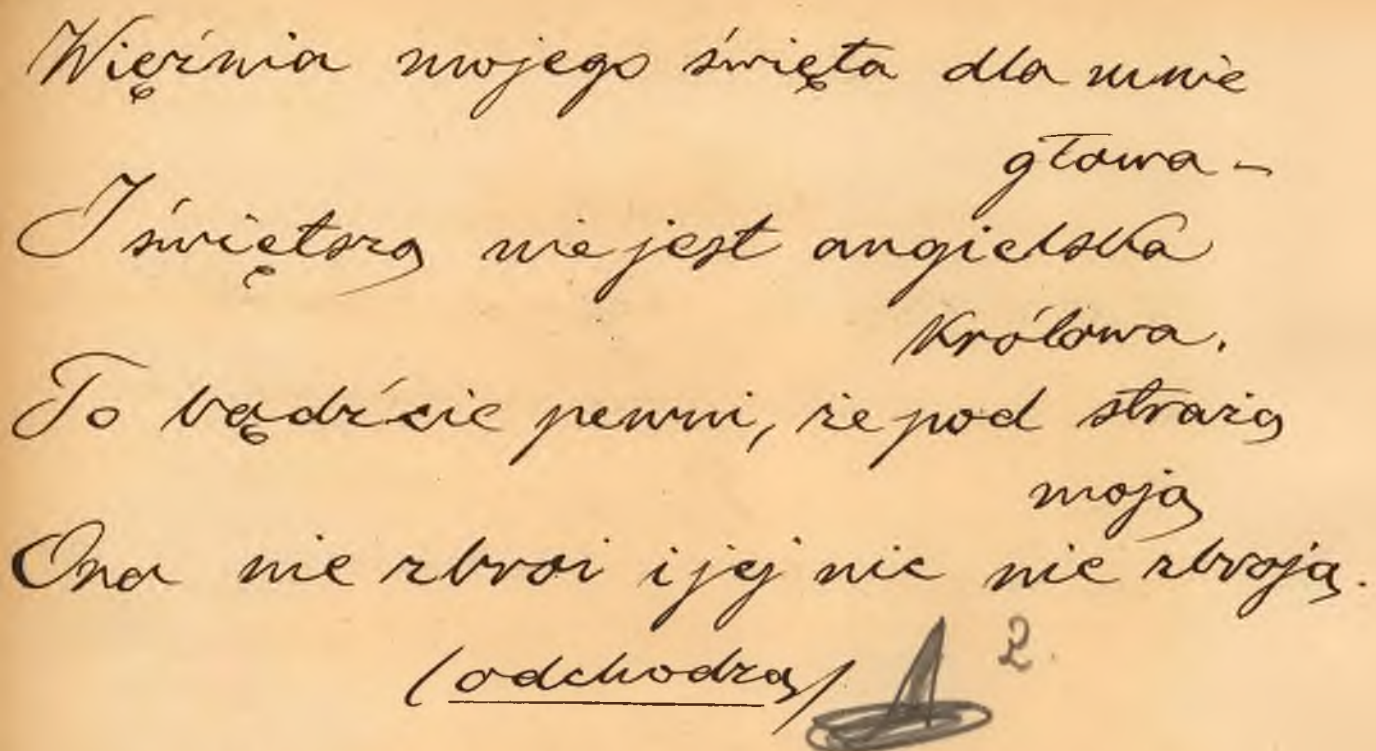 Więźnia mojego święta dla mnie
głowa –
I świętszą nie jest angielska
Królowa.
To bądźcie pewni, że pod strażą
moją
Ona nie zbroi i jej nic nie zbroją.
(odchodzą)
2.